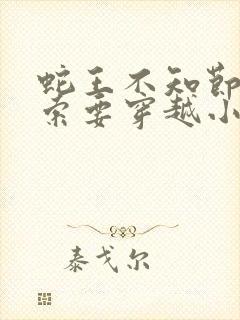 蛇王不知节
索要穿越小
泰戈尔